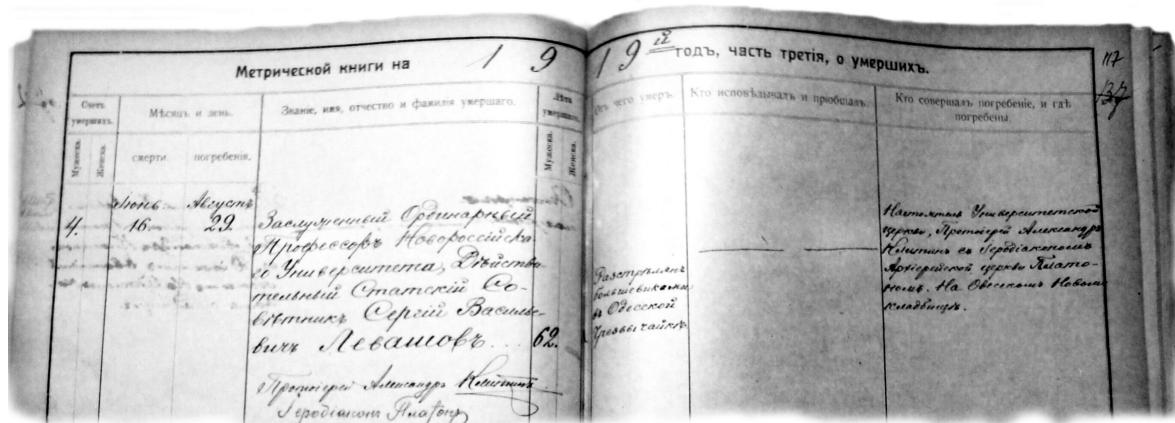 Метрической книги на 1 9 19 й годъ, часть третія, о умершихъ.
117
137
Счетъ умершихъ.
Мужеска.
Женска.
Мѣсяцъ и день.
смерти.
погребенія.
Званіе, имя, отчество и фамилія умершаго.
Лѣта умершаго.
Мужеска.
Женска.
Отъ чего умеръ.
Кто исповѣдывалъ и пріобщалъ.
Кто совершалъ погребеніе, и гдѣ
погребены.
4.
Іюнь
16.
Августъ
29.
Заслуженный Ординарный
Профессоръ Новороссійска-
го Университета, Дѣйстви-
тельный Статскій Со-
вѣтникъ Сергій Василье-
вичъ Левашовъ...
62.
Разстрѣлянъ
большевиками
въ Одесской
Чрезвычайкѣ.
Настоятель Университетской
церкви, Протоіерей Александръ
Клитинъ съ Іеродіакономъ
Архіерейской церкви Плато-
номъ. На Одесскомъ Новомъ
кладбищѣ.
Протоіерей Александръ Клитинъ
Іеродіаконъ Платонъ